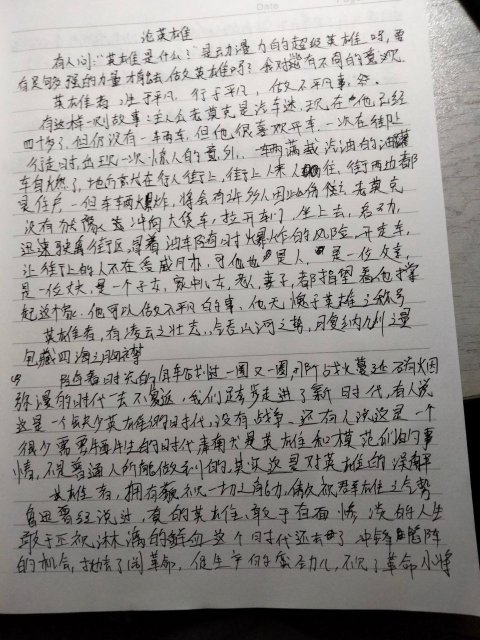 论英雄
有人问:“英雄是什么?”是动漫力的超级英雄吗,要
有足够强的力量才能去做英雄吗?会对有不同的意见.
英雄者,生于平凡,行于平凡,做不平凡事.
有这样一则故事:主人公老莫克是汽车迷,现在他已经
四十多了,但仍没有一车两车,但他很喜欢开车.一次在街上
行走时,出现一次惊人的意外,一辆满载汽油的油罐
车自燃了,地点在行人街上,街上人来人往,街两边都
是住户,一但车辆爆炸,将会有许多人因此伤怪,老莫克
没有犹豫,直冲向大货车,拉开车门,坐上去,启动,
迅速驶离街区,冒着油车随时爆炸的风险,开走车,
让街上的人不在受威胁,可他也是人,是一位父亲,
是一位丈夫,是一个子女,家中儿女,老人,妻子,都指望着他撑
起这个家,他可以做不平凡的事,他无愧于英雄之称号
英雄者,有凌云之壮志,气吞山河之势,腹纳九州之量
包藏四海之胸襟
随着时光的年轮划过一圈又一圈,那战火蔓延硝烟
弥漫的时代一去不复返,我们迈步走进了新时代,有人说
这是一个缺少英雄的时代,没有战争,还有人说这是一个
很少需要牺牲的时代,奉献是英雄和模范们的事
情,不是普通人所能做到的,其实这是对英雄的误解
英雄者,拥有藐视一切之能力,俯视群雄之气势
鲁迅曾经说过,真的英雄,敢于直面惨淡的人生
敢于正视淋漓的鲜血,这个时代还有了冲锋陷阵
的机会,抛去了闹革命,但生产的蛮劲儿,不见了革命小将